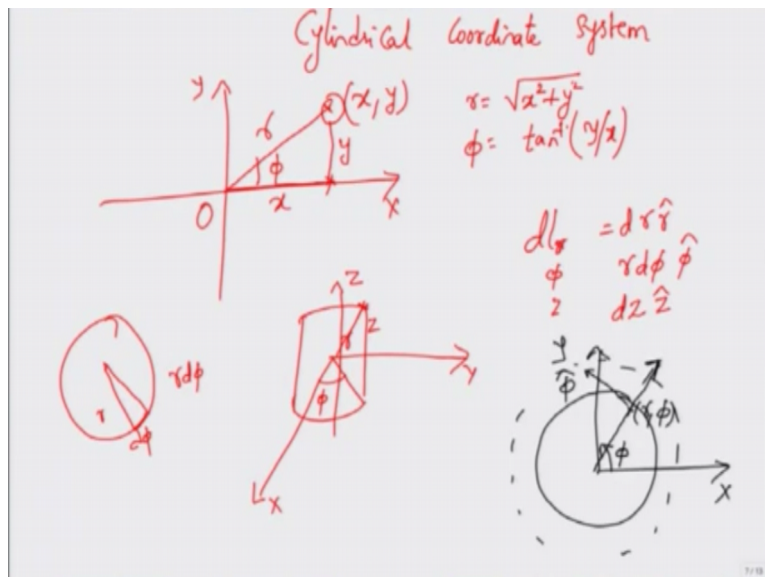 Cylindrical Coordinate System
y
(x, y)
r
ϕ
y
x
X
O
r = √x²+y²
ϕ = tan⁻¹(y/x)
dl_r = dr r̂
ϕ rdϕ ϕ̂
z dz ẑ
r
dϕ
rdϕ
Z
r
z
ϕ
y
X
y
ϕ̂
(r, ϕ)
ϕ
X
7/18